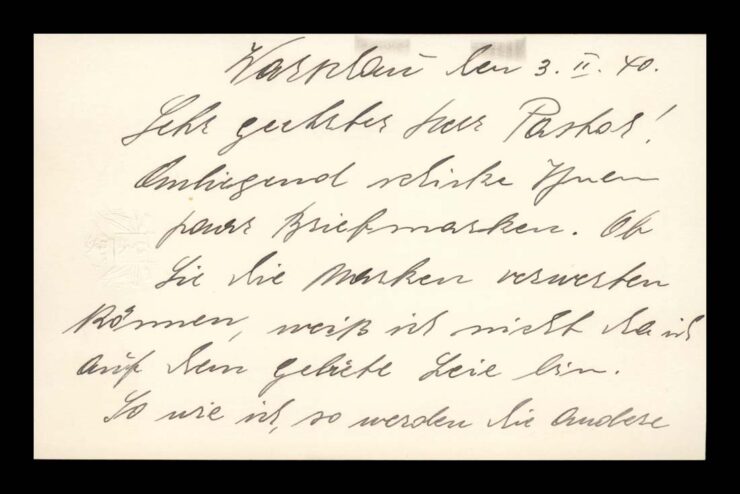 Warklau den 3. II. 40.
Sehr geehrter Herr Pastor!
Anliegend schicke Ihnen
paar Briefmarken. Ob
Sie die Marken verwerten
können, weiß ich nicht da ich
auf dem gebiete Leie bin.
So wie ich, so werden die andere